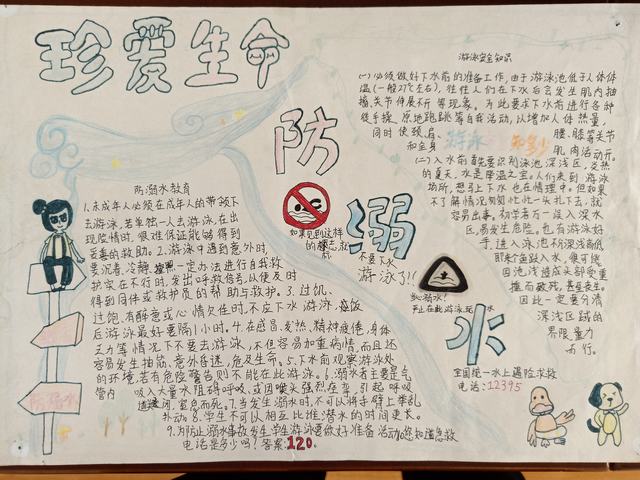 珍爱生命
防
溺
水
防溺水教育
1.未成年人必须在成年人的带领下
去游泳,若单独一人去游泳,在出
现险情时,很难保证能够得到
妥善的救助。2.游泳中遇到意外时,
要沉着、冷静、按照一定办法进行自我救
护实在不行时,发出呼救信号,以便及时
得到同伴或救护员的帮助与救护。3.过饥、
过饱,有醉意或心情欠佳时,不应下水游泳,应饭
后游泳最好要隔1小时。4.在感冒、发热、精神疲倦、身体
乏力等情况下不要去游泳,不但容易加重病情,而且还
容易发生抽筋、意外昏迷,危及生命。5.下水前观察游泳处
的环境,若有危险警告则不能在此游泳。6.溺水者主要是气
管内吸入大量水阻碍呼吸,或因喉头强烈痉挛,引起呼吸
道关闭,窒息而死。7.当发生溺水时,不可以将手臂上举乱
扑动。8.学生不可以相互比谁潜水的时间更长。
9.为防止溺水事故发生,学生游泳要做好准备活动。您知道急救
电话是多少吗?答案:120。
游泳安全知识
(一)必须做好下水前的准备工作,由于游泳池低于人体体
温(一般27℃左右),往往人们在下水后会发生肌肉抽
搐、关节伸展不开等现象,为此要求下水前进行各种
徒手操、原地跑跳等自我活动,以增加人体热量,
同时使颈、肩、腰、膝等关节
和全身肌肉活动开。
游泳知多少
(二)入水前首先要识别泳池深浅区,炎热
的夏天,水是降温之宝。人们来到游泳
场所,想马上下水也在情理中。但如果
不了解情况匆匆忙忙一头扎下去,就
容易出事,初学者万一误入深水
区,易发生危险。也有游泳好
手,进入泳池不问深浅高低
即来个鱼跃入水,很可能
因池浅造成头部受重
撞而致死,甚至丧生。
因此一定要分清
深浅区域的
界限,量力
而行。
如果见到这样
的标志,就
不要下水
游泳了!!
当心溺水!
禁止在此游泳玩水
全国统一水上遇险求救
电话:12395
防溺水